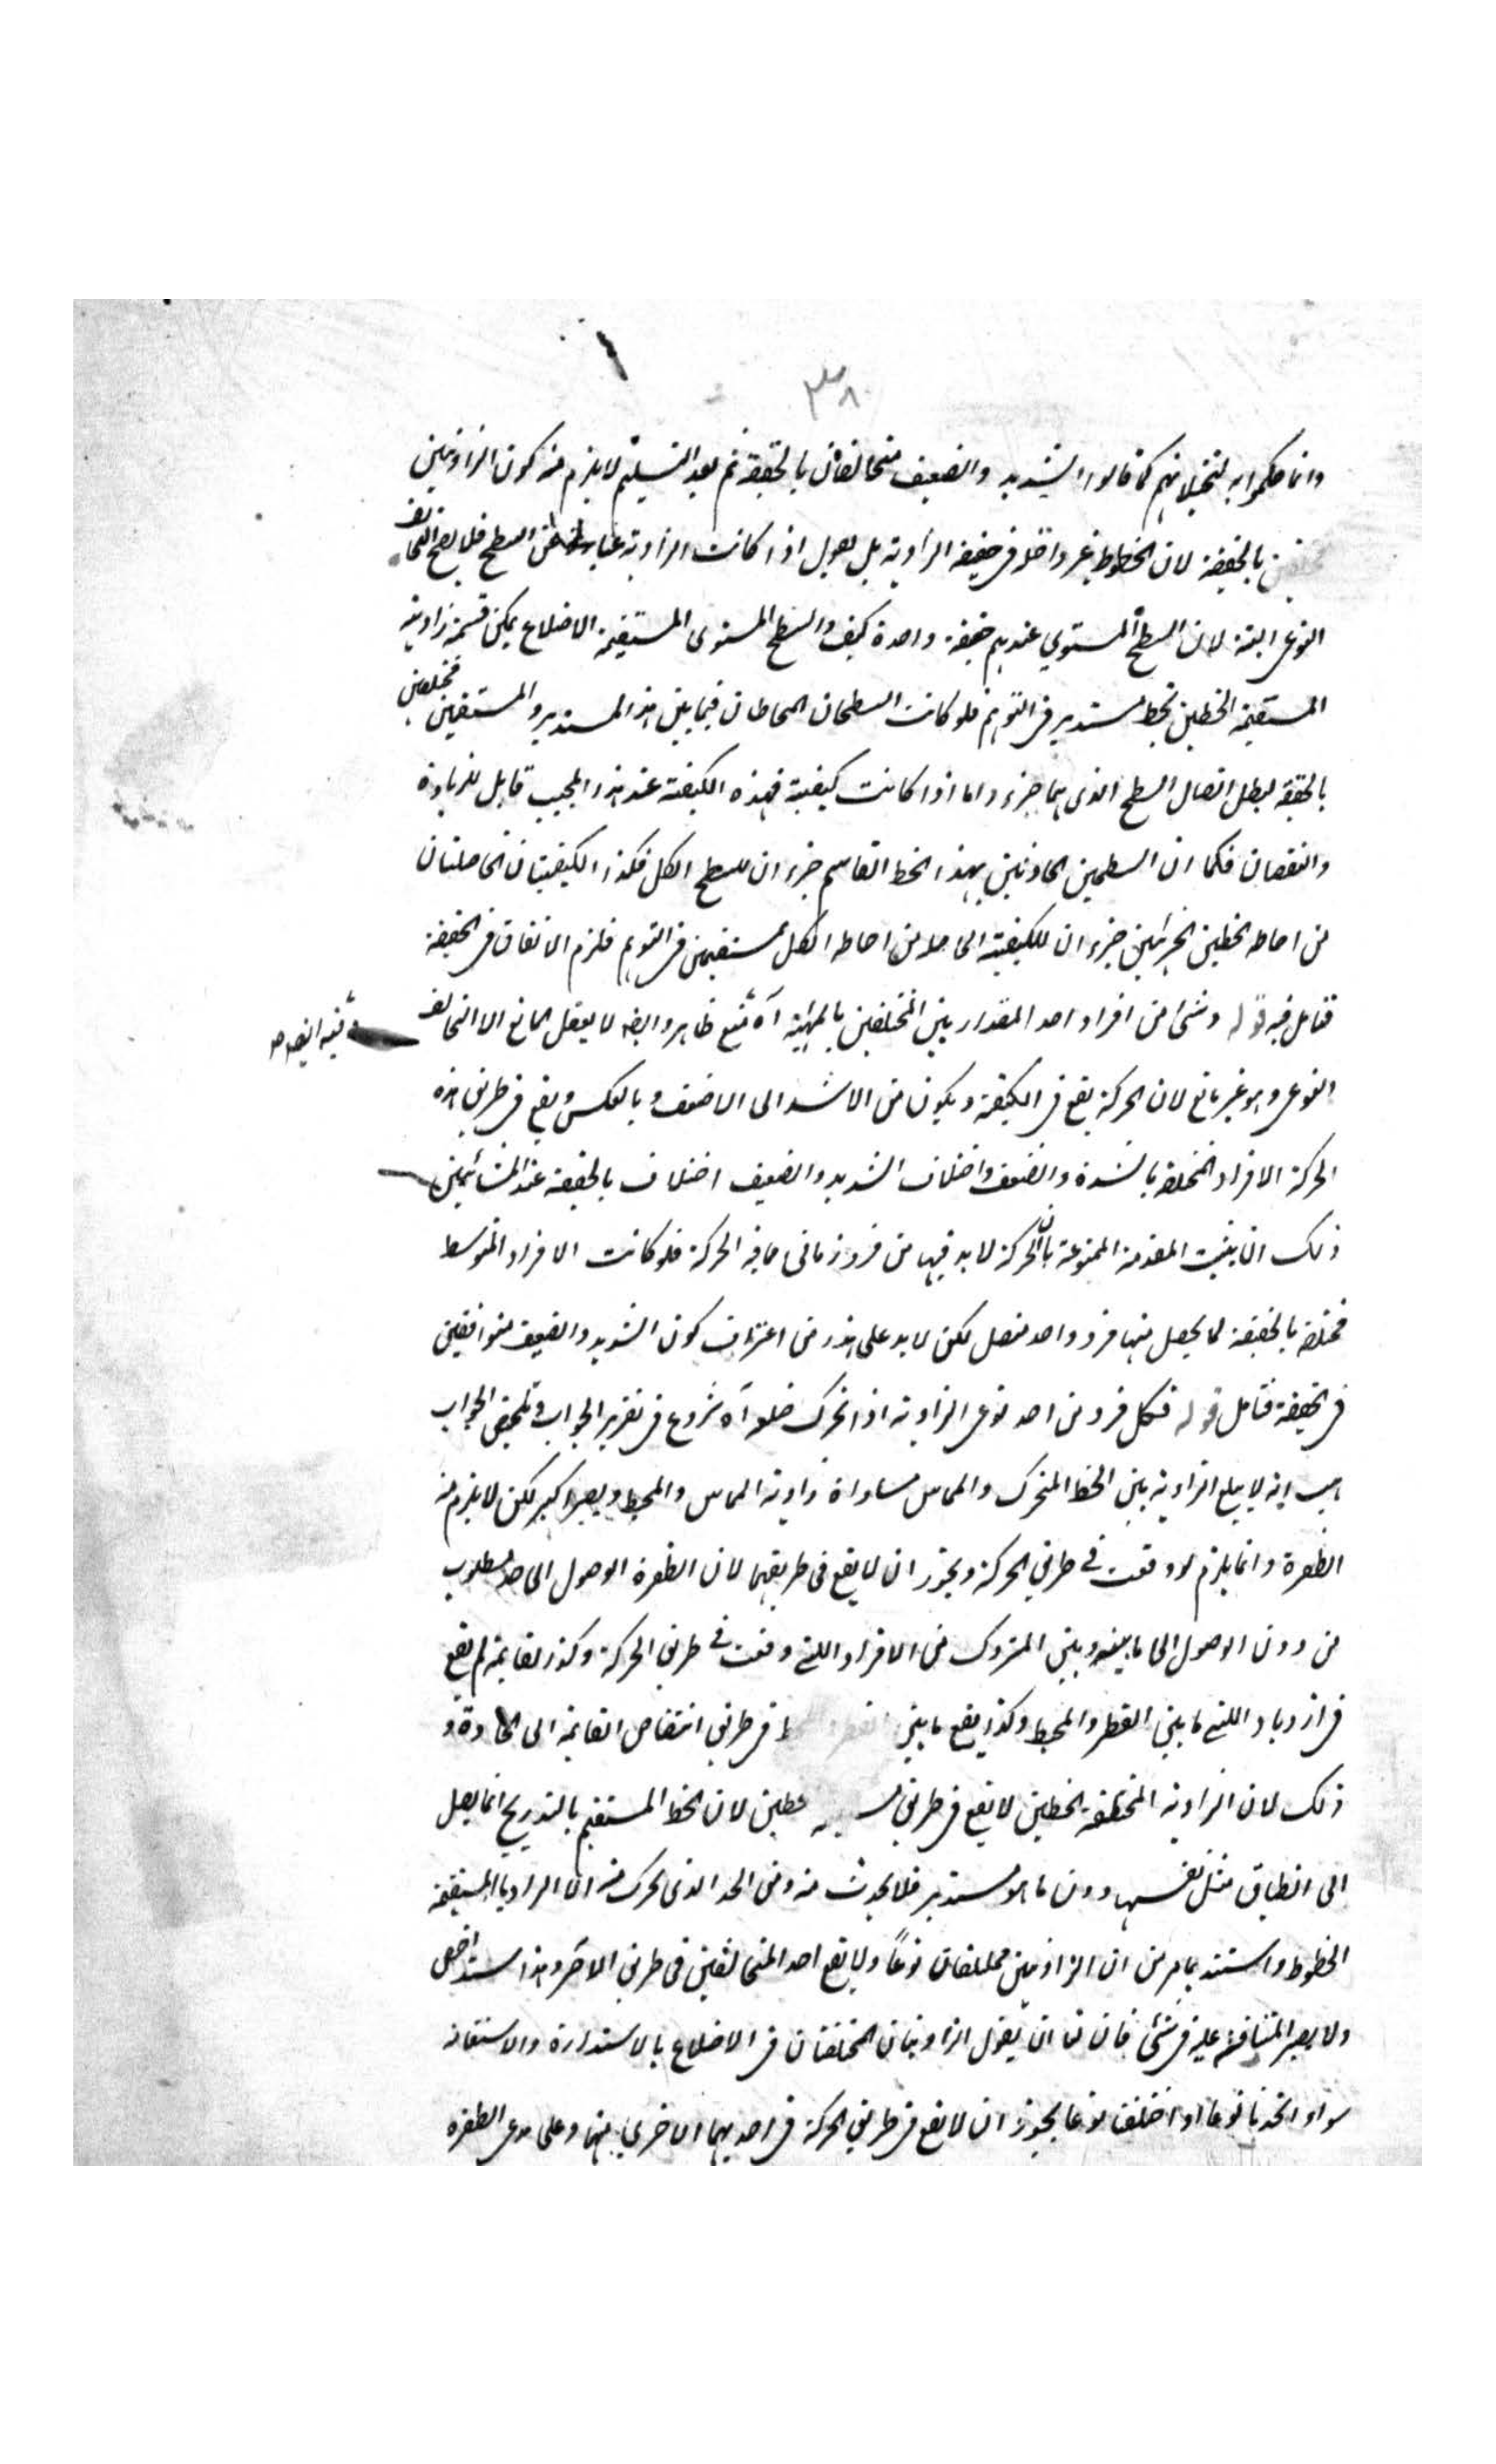 ٣٨
وانما حكموا به لتخيلاتهم كما قالوا الشديد والضعيف متخالفان بالحقيقة ثم بعد التسليم لا يلزم منه كون الزاويتين
مختلفتين بالحقيقة لان الخطوط غير داخلة في حقيقة الزاوية بل نقول اذا كانت الزاوية عبارة عن السطح فلا يصح التخالف
النوعي البتة لان السطح المستوي عندهم حقيقة واحدة كيف والسطح المستوى المستقيمة الاضلاع يمكن قسمة زاويته
المستقيمة الخطين بخط مستدير في التوهم فلو كانت السطحان المحاطان فيما بين هذا المستدير والمستقيمين مختلفين
بالحقيقة لبطل اتصال السطح الذي هما جزء واما اذا كانت كيفية فهذه الكيفية عند هذا المجيب قابل للزيادة
والنقصان فكما ان السطحين الحادثين بهذا الخط القاسم جزء ان للسطح الكل فكذا الكيفيتان الحاصلتان
من احاطة الخطين الجزئين جزء ان للكيفية الحاصلة من احاطة الكل مستقيمين في التوهم فلزم الاتفاق في الحقيقة
فتامل فيه قوله وشئ من افراد احد المقدارين المختلفين بالماهية آه منع ظاهر وايضا لا يعقل المانع الا التخالف
وفيه ايضا
النوعي وهو غير مانع لان الحركة يقع في الكيفية ويكون من الاشد الى الاضعف وبالعكس ويقع في طريق هذه
الحركة الافراد المختلفة بالشدة والضعف واختلاف الشديد والضعيف اختلاف بالحقيقة عند المشائين
ذلك ان يثبت المقدمة الممنوعة بان الحركة لا بد فيها من فرد زماني مما فيه الحركة فلو كانت الافراد المتوسط
مختلفة بالحقيقة لما يحصل منها فرد واحد متصل لكن لا بد على هذا من اعتراف كون الشديد والضعيف متوافقين
في الحقيقة فتامل قوله فكل فرد من احد نوعي الزاوية اذا تحرك ضلع آه شروع في تقرير الجواب وتلخيص الجواب
هب انه لا يبلغ الزاوية بين الخط المتحرك والمماس مساواة زاوية المماس والمحيط ويصير اكبر لكن لا يلزم منه
الطفرة وانما يلزم لو وقعت في طريق الحركة ويجوز ان لا يقع في طريقهما لان الطفرة الوصول الى حد مطلوب
من دون الوصول الى ما بينه وبين المتروك من الافراد اللتي وقعت في طريق الحركة وكذا القايمة لم يقع
في ازدياد اللتي ما بين القطر والمحيط وكذا يقع ما بين القطر في طريق انتقاص القايمة الى الحادة و
ذلك لان الزاوية المختلفة الخطين لا يقع في طريق خطين لان الخط المستقيم بالتدريج انما يصل
الى انطباق مثل نفسها دون ما هو مستدير فلا يحدث منه ومن الحد الذي تحرك منه الا الزوايا المستقيمة
الخطوط واستند بما مر من ان الزاويتين مختلفتان نوعًا ولا يقع احد المتخالفين في طريق الآخر وهذا سند اخص
ولا يصير المناقشة عليه في شئ فان لنا ان نقول الزاويتان المختلفتان في الاضلاع بالاستدارة والاستقامة
سواء اتحدتا نوعا او اختلفتا نوعا يجوز ان لا يقع في طريق الحركة في احديهما الاخرى منهما وعلى مدعي الطفرة